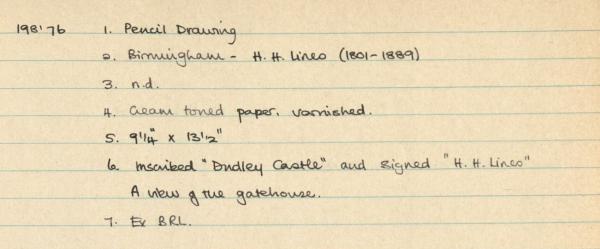 198'76 1. Pencil Drawing
2. Birmingham - H. H. Lines (1801-1889)
3. n.d.
4. Cream toned paper, varnished.
5. 9 1/4" x 13 1/2"
6. Inscribed "Dudley Castle" and signed "H. H. Lines"
A view of the gatehouse.
7. Ex BRL.